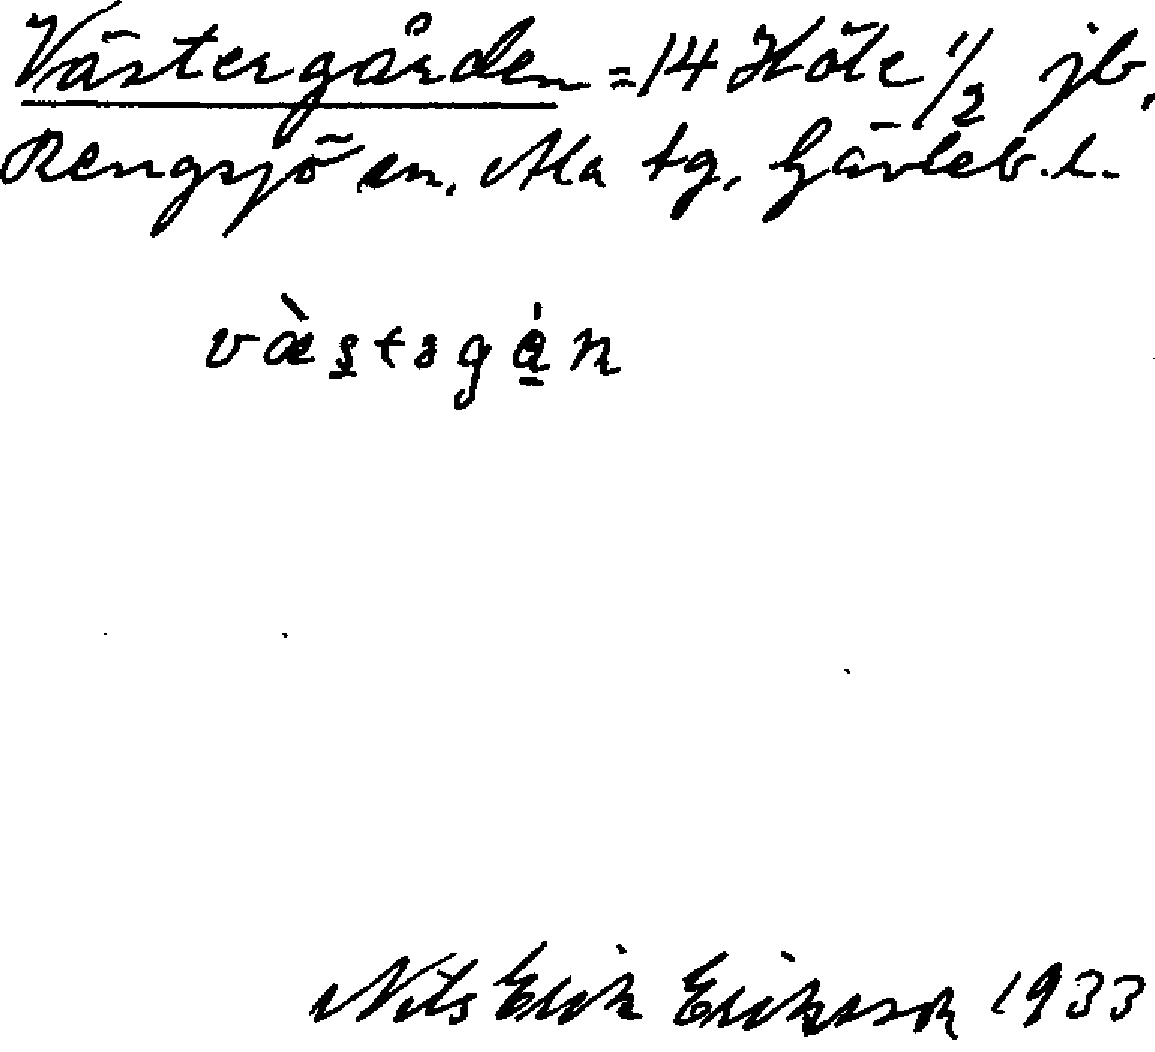 Västergården = 14 Höle 1/2 jb,
Rengsjö sn. Ala tg. Gävleb. l.
västəgån
Nils Erik Eriksson 1933